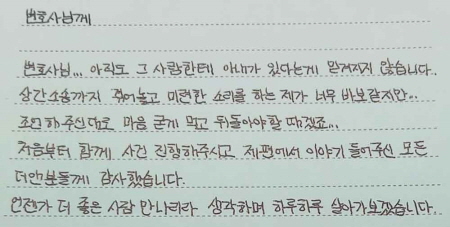 변호사님께
변호사님... 아직도 그 사람한테 아내가 있다는게 믿겨지지 않습니다.
상간소송까지 겪어놓고 미련한 소리를 하는 제가 너무 바보같지만...
조언해주신대로 마음 굳게 먹고 뒤돌아야할 때겠죠...
처음부터 함께 사건 진행해주시고 제편에서 이야기 들어주신 모든
더앤분들께 감사했습니다.
언젠가 더 좋은 사람 만나리라 생각하며 하루하루 살아가보겠습니다.